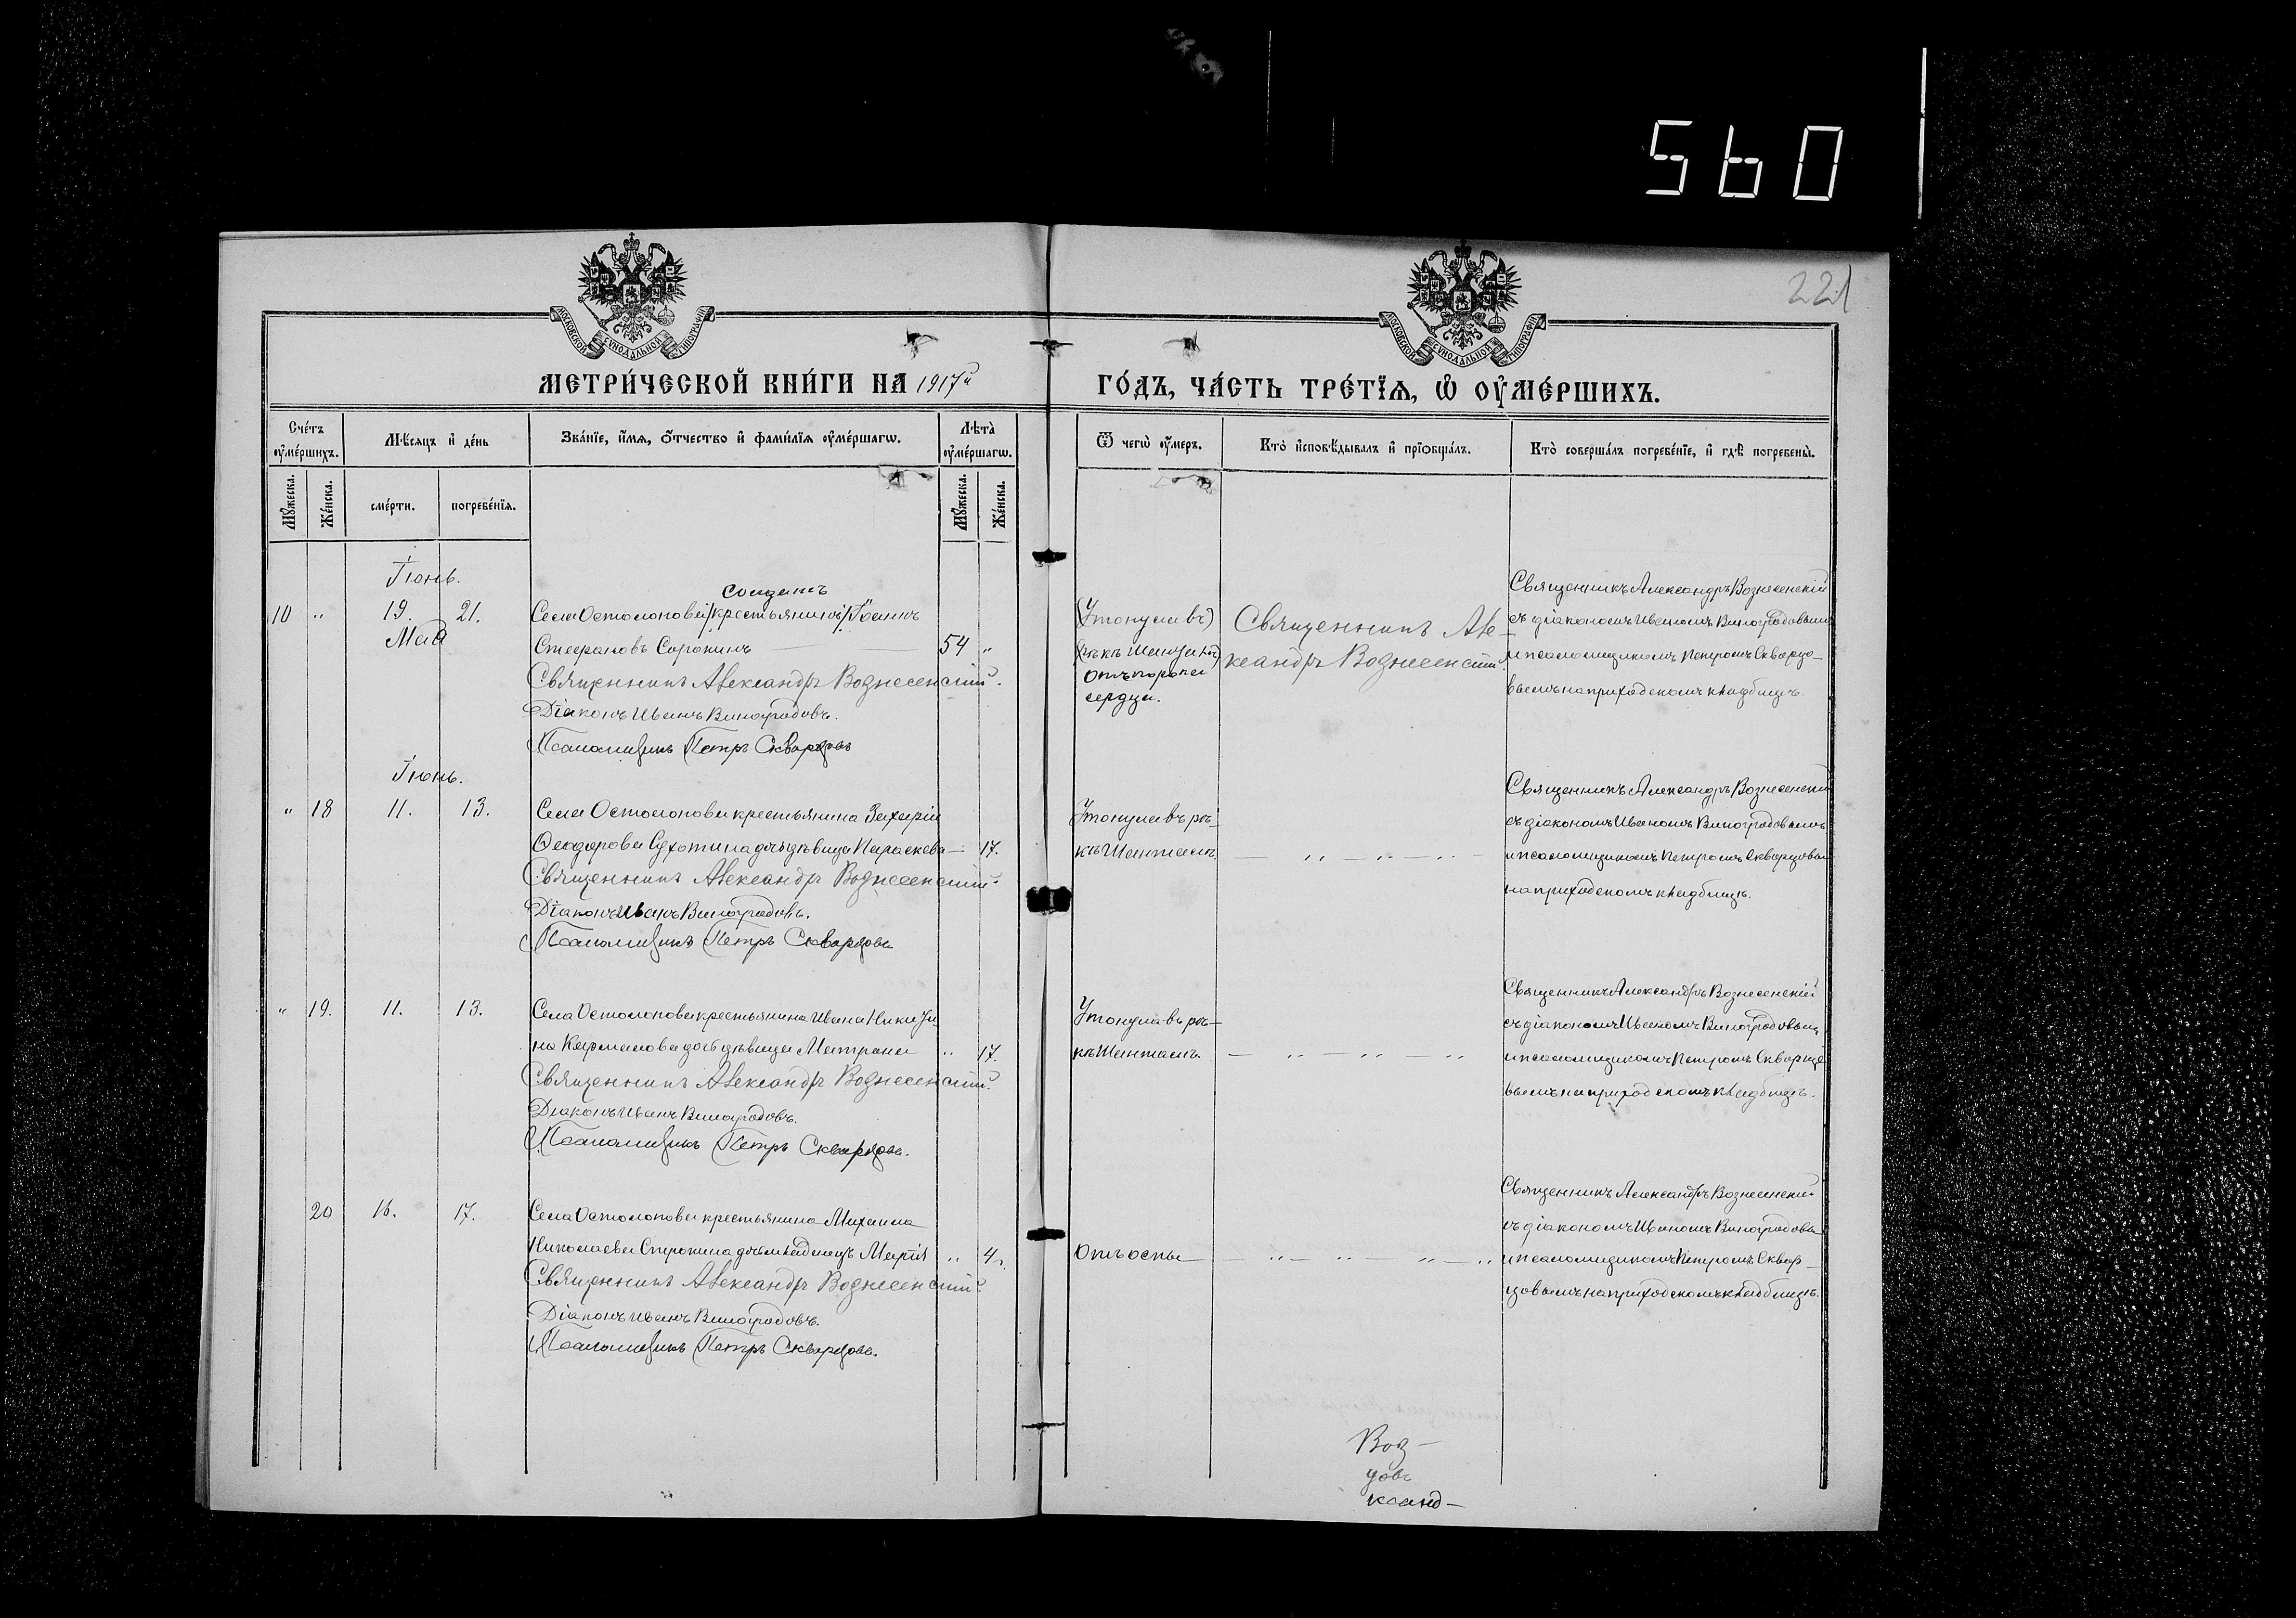 560
221
МОСКОВСКОЙ СУНОДАЛЬНОЙ ТИПОГРАФІИ
МОСКОВСКОЙ СУНОДАЛЬНОЙ ТИПОГРАФІИ
МЕТРИ́ЧЕСКОЙ КНИ́ГИ НА 1917й ГО́ДЪ, ЧА́СТЬ ТРЕ́ТЇѦ, Ѽ ОУ҆МЕ́РШИХЪ.
Сче́тъ оу҆ме́ршихъ.
Мꙋжеска.
Же́нска.
Мѣ́сѧцъ и҆ де́нь
сме́рти.
погребе́нїѧ.
Зва́нїе, и҆́мѧ, ѻ҆́тчество и҆ фами́лїѧ оу҆ме́ршагѡ.
Лѣ́та оу҆ме́ршагѡ.
Мꙋжеска.
Же́нска.
Ѿ чегѡ̀ оу҆́меръ.
Кто̀ и҆сповѣ́дывалъ и҆ прїѡбща́лъ.
Кто̀ соверша́лъ погребе́нїе, и҆ гдѣ̀ погребены̀.
Іюнь.
солдатъ
10 " 19. 21. Села Остолопова /крестьянинъ/ Іоаннъ
Мая
Стефановъ Сорокинъ 54 "
Священникъ Александръ Вознесенскій.
Діаконъ Иванъ Виноградовъ.
Псаломщикъ Петръ Скварцовъ
(Утонула въ)
(рѣкѣ Шентамѣ)
Отъ порока
сердца.
Священникъ Але-
ксандръ Вознесенскій
Священникъ Александръ Вознесенскій
съ діакономъ Иваномъ Виноградовымъ
и псаломщикомъ Петромъ Скварцо-
вымъ на приходскомъ кладбищѣ.
Іюнь.
" 18 11. 13. Села Остолопова крестьянина Захарія
Ѳеодорова Сухотина дочь дѣвица Параскева 17.
Священникъ Александръ Вознесенскій.
Діаконъ Иванъ Виноградовъ.
Псаломщикъ Петръ Скварцовъ
Утонула въ рѣ-
кѣ Шентамѣ. — " — " — " —
Священникъ Александръ Вознесенскій
съ діакономъ Иваномъ Виноградовымъ
и псаломщикомъ Петромъ Скварцовымъ
на приходскомъ кладбищѣ.
" 19. 11. 13. Села Остолопова крестьянина Ивана
на Карманова дочь дѣвица Матрона " 17.
Священникъ Александръ Вознесенскій.
Діаконъ Иванъ Виноградовъ.
Псаломщикъ Петръ Скварцовъ.
Утонула въ рѣ-
кѣ Шентамѣ. — " — " — "
Священникъ Александръ Вознесенскій
съ діакономъ Иваномъ Виноградовымъ
и псаломщикомъ Петромъ Скварцо
вымъ на приходскомъ кладбищѣ.
20 16. 17. Села Остолопова крестьянина Михаила
Николаева дочь младенецъ Марія " 4 г.
Священникъ Александръ Вознесенскій.
Діаконъ Иванъ Виноградовъ.
Псаломщикъ Петръ Скварцовъ.
Отъ оспы " — " — " — "
Священникъ Александръ Вознесенскій
съ діакономъ Иваномъ Виноградовы
и псаломщикомъ Петромъ Сквор-
цовымъ на приходскомъ кладбищѣ.
Воз-
цовъ
ксанд-